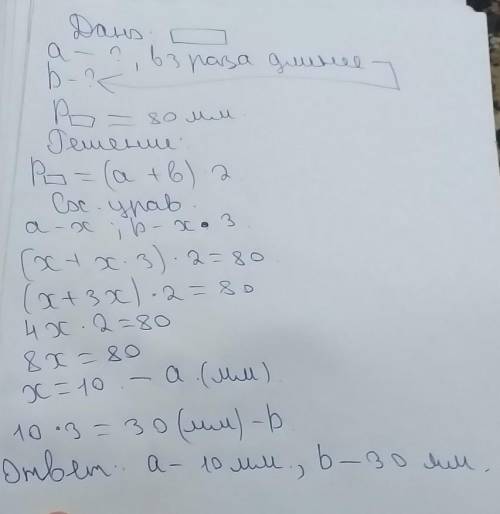 Дано:
a – ?, в 3 раза длинее
b – ?
P▭ = 80 мм.
Решение:
P▭ = (a + b) · 2
Сос. урав.
a – x ; b – x · 3
(x + x · 3) · 2 = 80
(x + 3x) · 2 = 80
4x · 2 = 80
8x = 80
x = 10 – a (мм)
10 · 3 = 30 (мм) – b
Ответ: a – 10 мм, b – 30 мм.